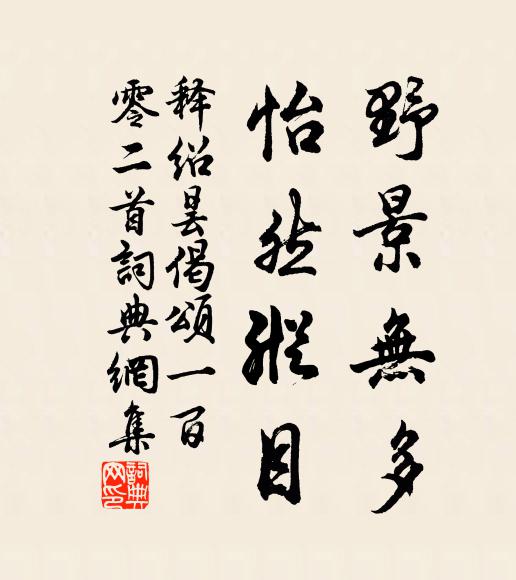 野景無多
怡然縱目
释绍昙偈頌一百
零二首詞典網集
詞典
网印